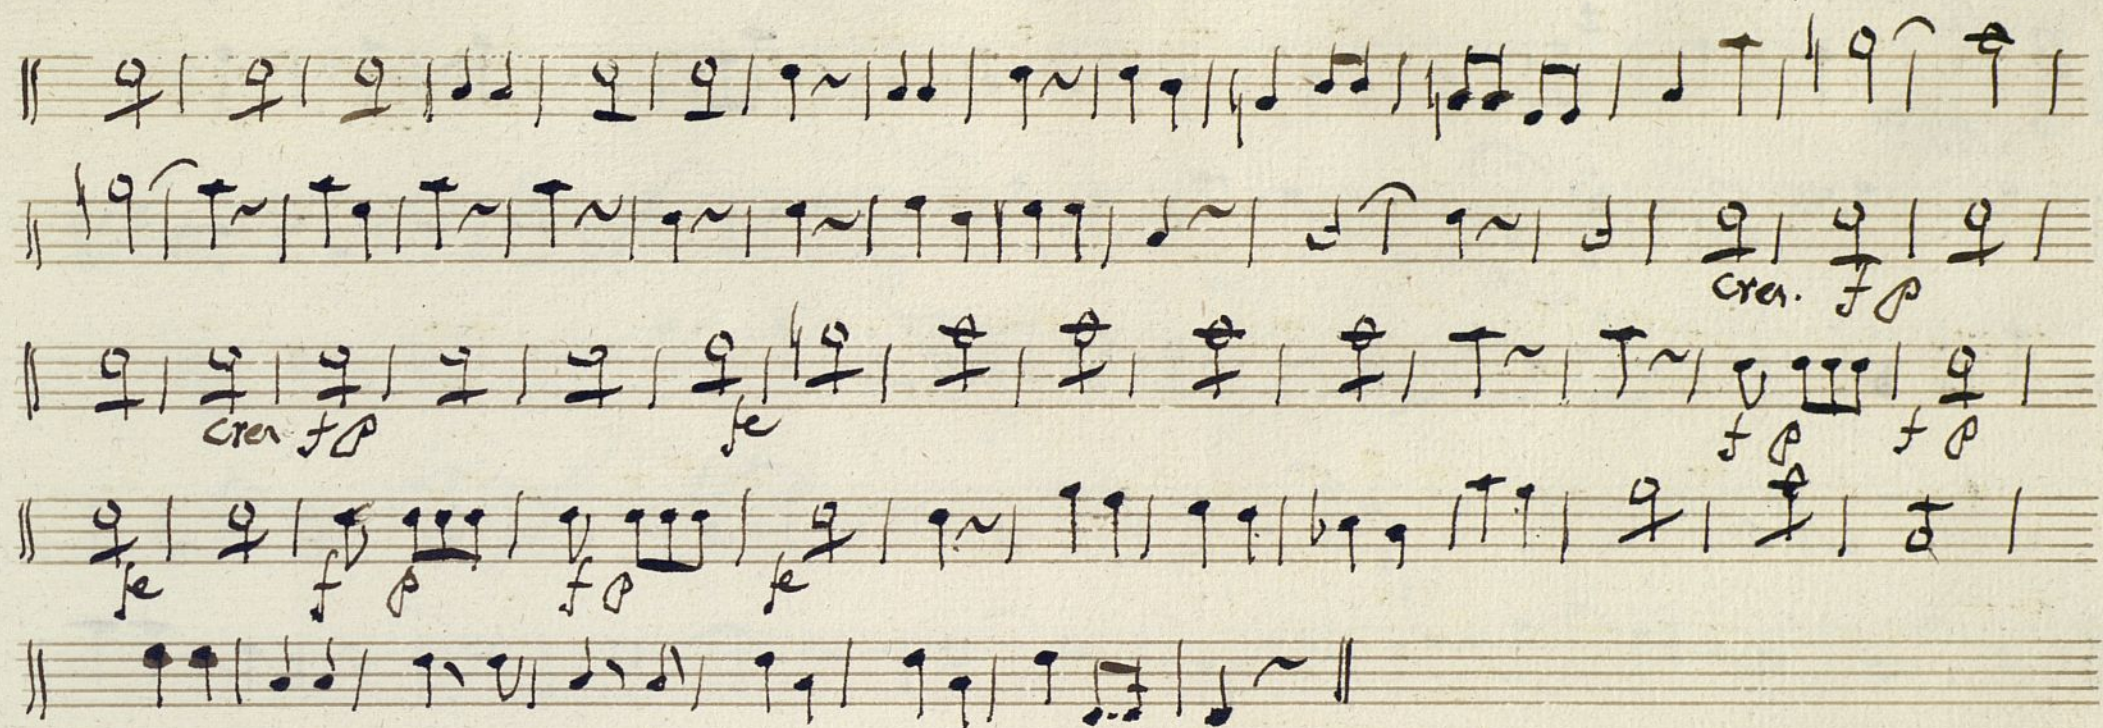 cres. f p
cres f p fe f p f p
fe f p f p fe